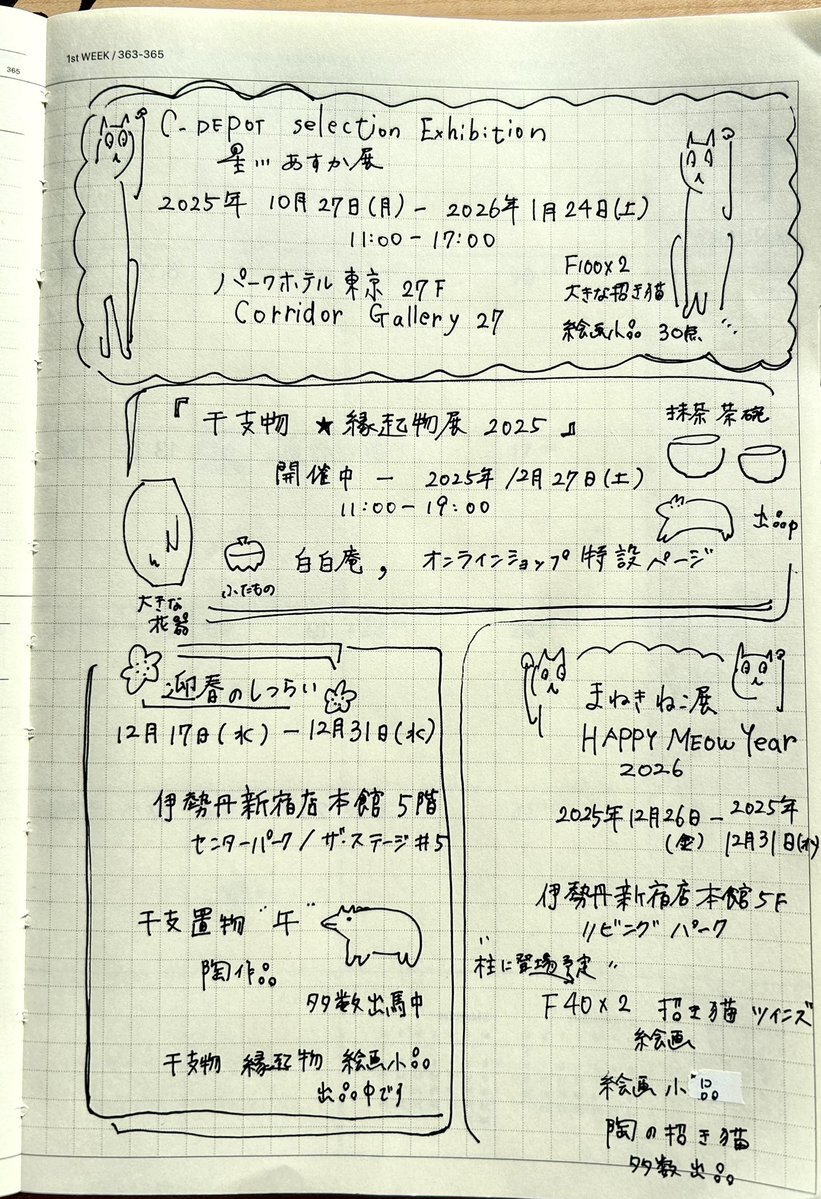 1st WEEK / 363-365
365
C-DEPOT selection Exhibition
星川あすか展
2025年 10月27日(月) - 2026年1月24日(土)
11:00-17:00
パークホテル東京 27F
Corridor Gallery 27
F100×2
大きな招き猫
絵画小品 30点
『干支物 ★ 縁起物展 2025』
抹茶茶碗
開催中 - 2025年12月27日(土)
11:00-19:00
出品中
白白庵, オンラインショップ特設ページ
ふたもの
大きな
花器
迎春のしつらい
12月17日(水) - 12月31日(水)
伊勢丹新宿店本館 5階
センターパーク/ザ・ステージ#5
干支置物 "午"
陶作品
多数出馬中
干支物 縁起物 絵画小品
出品中です
まねきねこ展
HAPPY MEOW Year
2026
2025年12月26日 - 2025年
(金) 12月31日(水)
伊勢丹新宿店本館5F
リビングパーク
"柱に登場予定"
F40×2 招き猫 ツインズ
絵画
絵画小品
陶の招き猫
多数出品